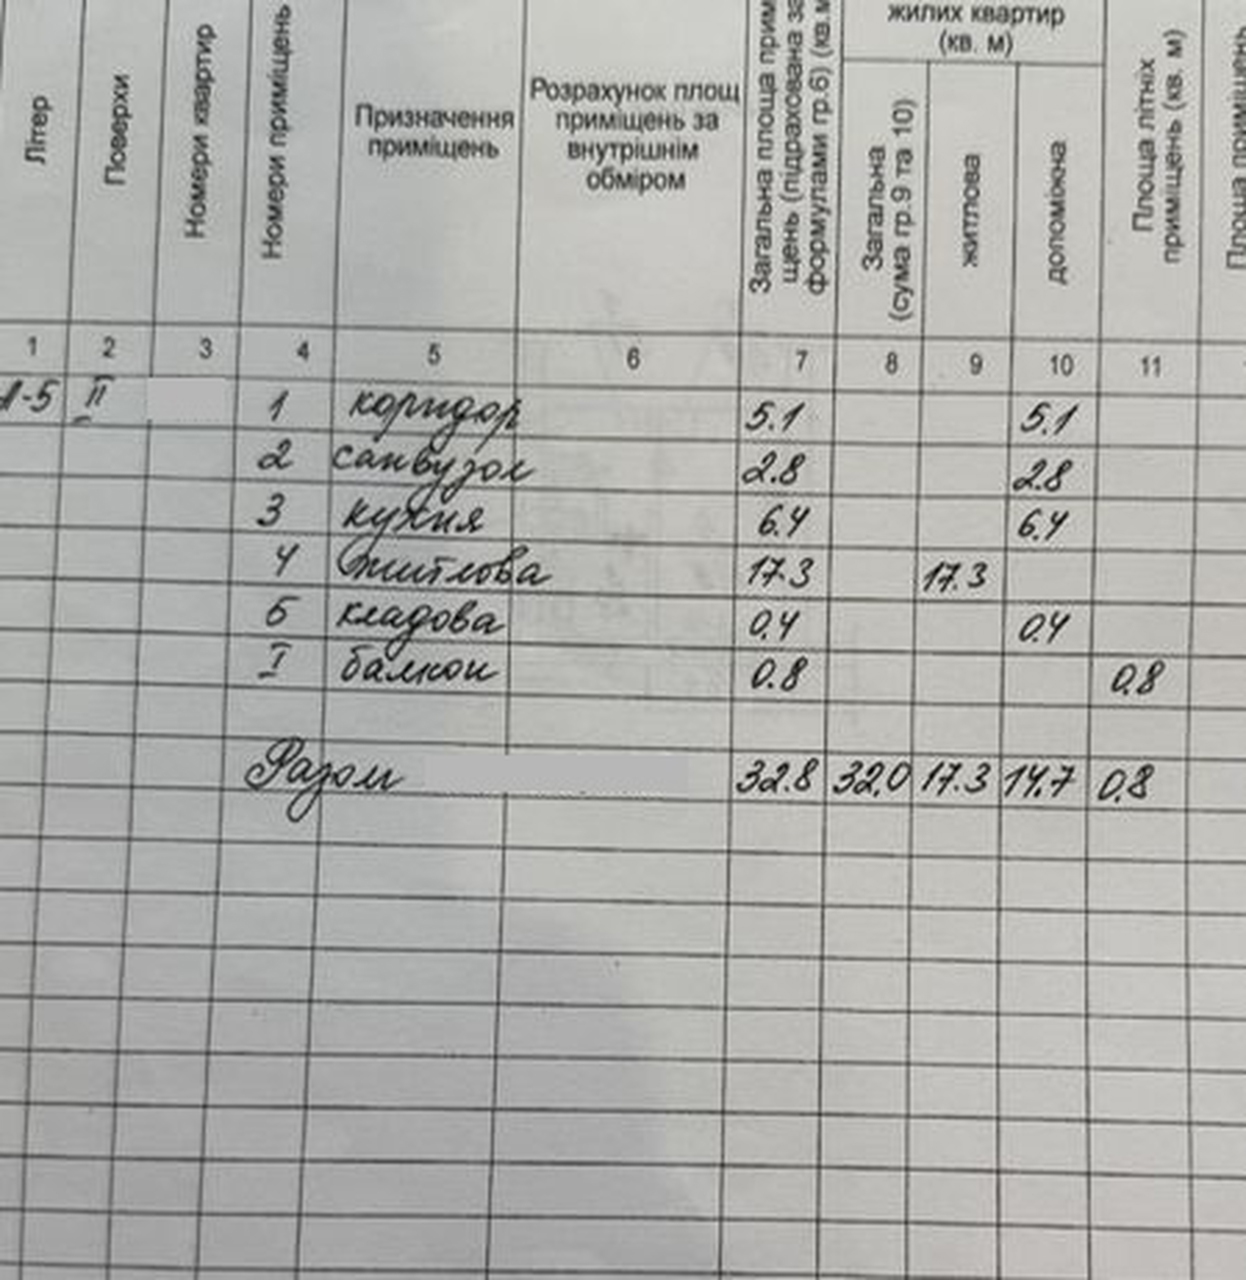 Літер
Поверхи
Номери квартир
Номери приміщень
Призначення
приміщень
Розрахунок площ
приміщень за
внутрішнім
обміром
Загальна площа прим
щень (підрахована за
формулами гр.6) (кв.м
жилих квартир
(кв. м)
Загальна
(сума гр.9 та 10)
житлова
допоміжна
Площа літніх
приміщень (кв. м)
Площа приміщень
1 2 3 4 5 6 7 8 9 10 11
А-5 II 1 коридор 5.1 5.1
2 санвузол 2.8 2.8
3 кухня 6.4 6.4
4 житлова 17.3 17.3
5 кладова 0.4 0.4
I балкон 0.8 0.8
Разом 32.8 32.0 17.3 14.7 0.8